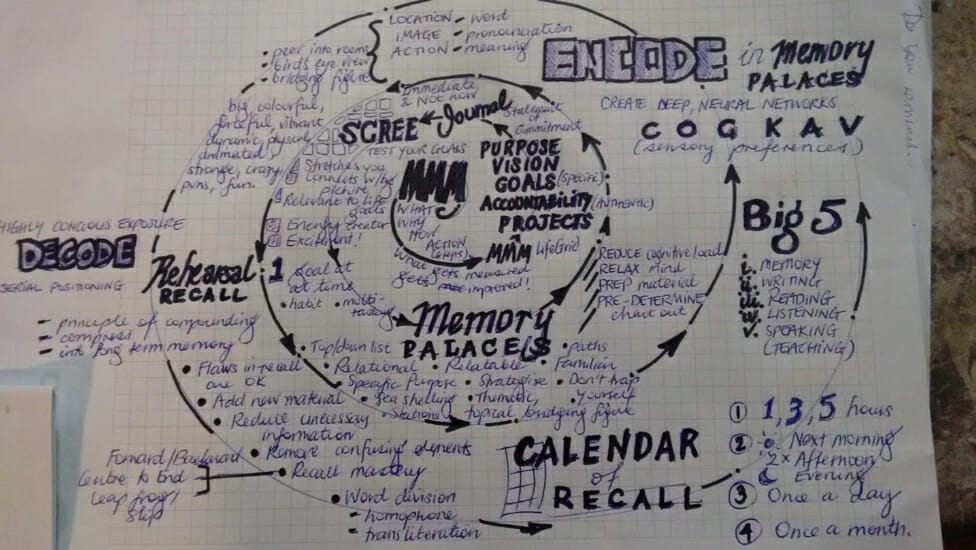 LOCATION - word
IMAGE - pronounciation
ACTION - meaning
• peer into rooms
• birds eye view
• bridging figure
ENCODE in Memory
PALACES
CREATE DEEP, NEURAL NETWORKS
C O G K A V
(sensory preferences)
Do you
big, colourful,
forceful, vibrant
dynamic, physical,
animated
strange, crazy
puns, fun.
Immediate
& Not now
SCREE Journal
Statement
of
Commitment
TEST YOUR GOALS
S Stretches you
C Connects w/big
picture
R Relevant to life
goals
E Energy Creator
E Excitement!
MMM
WHAT
WHY
HOW
ACTION
(steps)
PURPOSE
VISION
GOALS (specific)
ACCOUNTABILITY (AUTHENTIC)
PROJECTS
MMM LifeGrid
What gets measured
gets improved!
HIGHLY CONCIOUS EXPOSURE
DECODE
SERIAL POSITIONING
- principle of compounding
- compress
- into long term memory
Rehearsal
RECALL
1 Goal at
at time
• habit • multi-
tasking
Memory
PALACES
REDUCE cognitive load
RELAX mind
PREP material
PRE-DETERMINE
chart out
Big 5
i. MEMORY
ii. WRITING
iii. READING
iv. LISTENING
v. SPEAKING
(TEACHING)
• Top/down list
• Relational • Relatable • Familiar
• paths
• Specific Purpose • Strategise • Don't trap
yourself
• Sea shelling • Thematic,
Stations topical bridging figure
• Flaws in recall
are OK
• Add new material
• Reduce unecessay
information
• Remove confusing elements
• Recall mastery
Forward/Backward
Centre to End
Leap frog/
Skip
• Word division
- homophone
- transliteration
CALENDAR
of
RECALL
1 1, 3, 5 hours
2 Next morning
2x Afternoon
Evening
3 Once a day
4 Once a month.